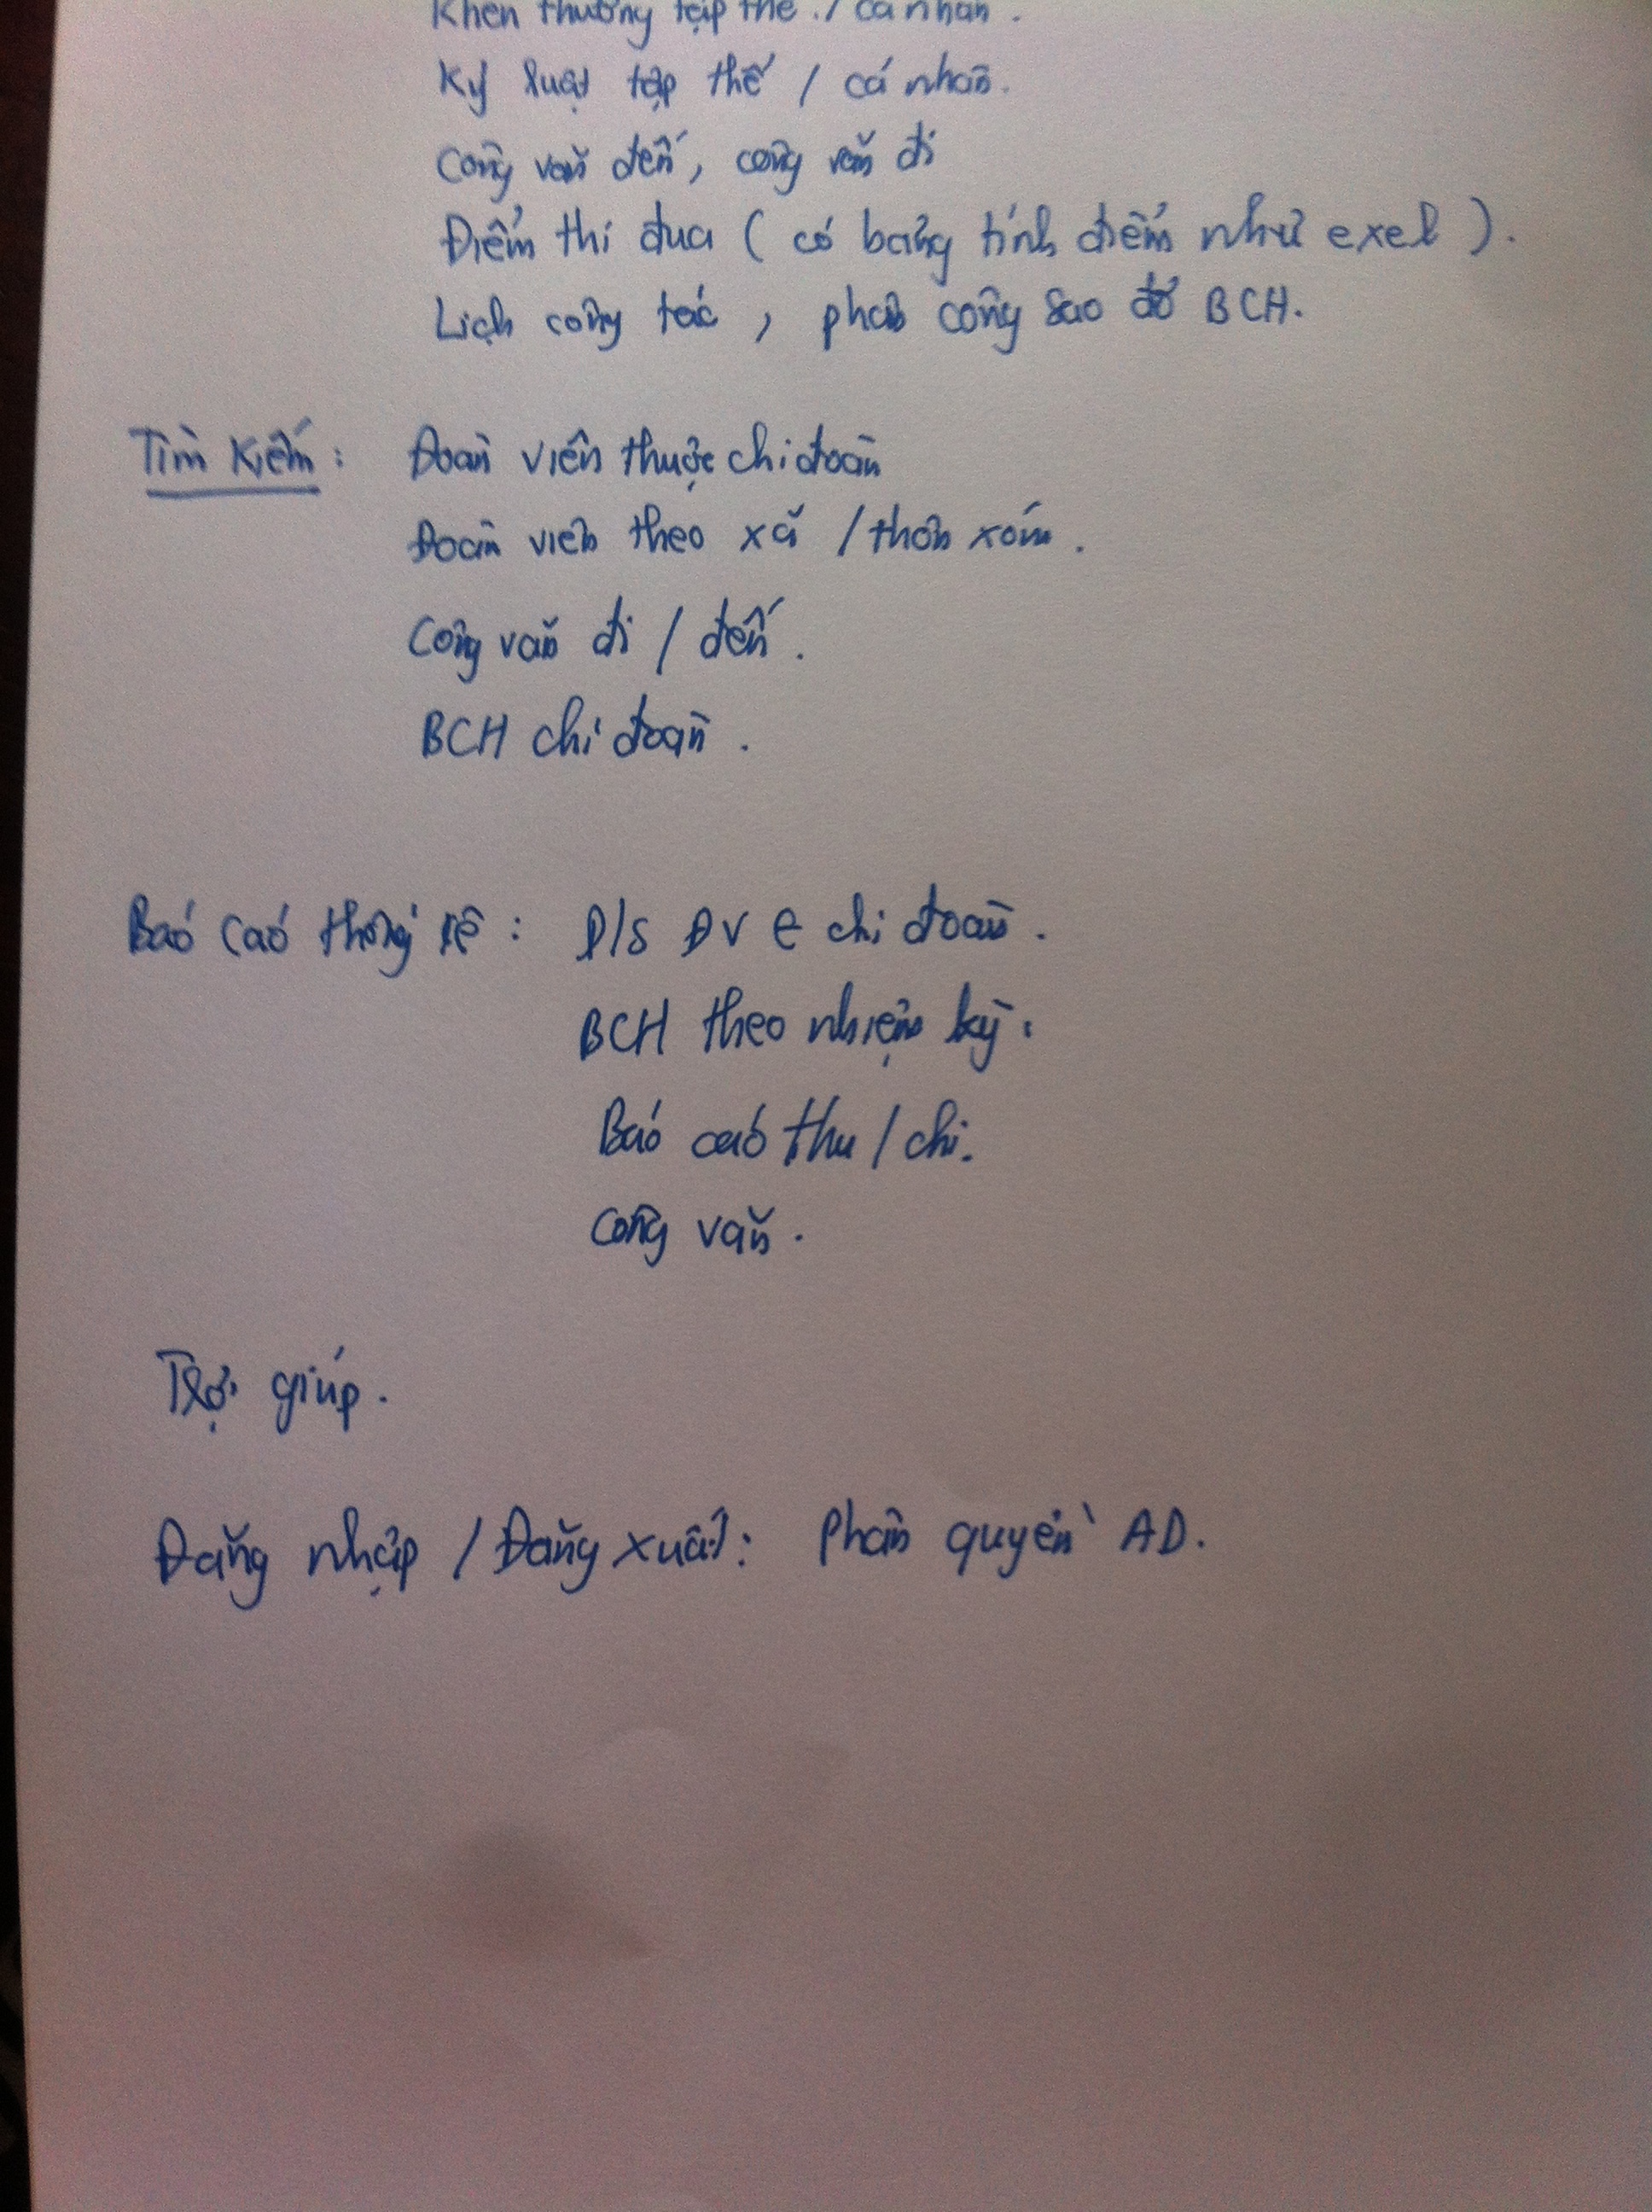 Khen thưởng tập thể / cá nhân.
Kỷ luật tập thể / cá nhân.
Công văn đến, công văn đi
Điểm thi đua ( có bảng tính điểm như exel ).
Lịch công tác , phân công sao đỏ BCH.
Tìm Kiếm : Đoàn viên thuộc chi đoàn
Đoàn viên theo xã / thôn xóm .
Công văn đi / đến .
BCH chi đoàn .
Báo cáo thống kê : D/s ĐV € chi đoàn .
BCH theo nhiệm kỳ .
Báo cáo thu / chi.
Công văn .
Trợ giúp .
Đăng nhập / Đăng xuất : Phân quyền AD.